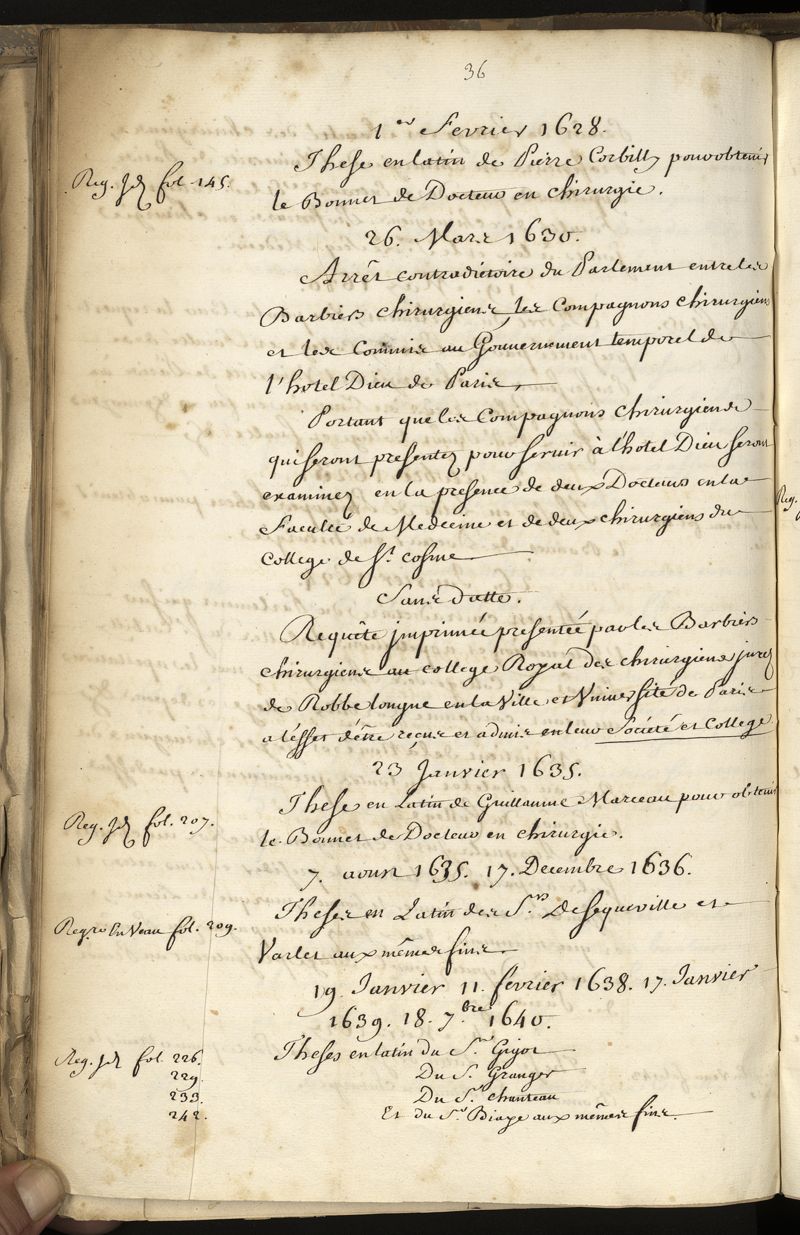 36
1er Fevrier 1628.
These en latin de Pierre Corbilly pour obtenir
Reg. Jd. fol. 145.
le Bonnet de Docteur en chirurgie.
26. Mars 1630.
Arrêt contradictoire du Parlement entre les
Barbiers chirurgiens, les Compagnons chirurgiens
et les Commis au Gouvernement temporel de
l'hotel Dieu de Paris,
Portant que les Compagnons chirurgiens
qui seront presentez pour servir à l'hotel Dieu seront
examinez en la presence de deux Docteurs en la
Faculté de Medecine et de deux chirurgiens du
College de St. Cosme
Sans datte.
Requête jmprimée presentée par les Barbiers
chirurgiens au college Royal des chirurgiens jurez
de Robbe longue en la Ville et Vniversité de Paris
a l'effet d'être reçus et admis en leur Société et College
23 Janvier 1635.
These en Latin de Guillaume Marceau pour obtenir
Reg. Jd. fol. 207.
le Bonnet de Docteur en chirurgie.
7. aoust 1635. 17. Decembre 1636.
Theses en Latin des Srs. Desequeville et
Reg. re en Veau fol. 209.
Varlet aux mêmes fins.
19. Janvier 11. février 1638. 17. Janvier
1639. 18. 7.bre 1640.
Reg. Jd. fol. 226. Theses en latin du Sr. Gigot
229. Du Sr. Granger
233. Du Sr. Chanteau
242. Et du Sr. Biaye aux mêmes fins.
Reg.